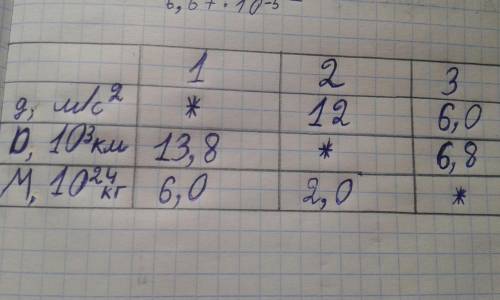 6,67·10⁻⁵
1 2 3
g, м/с² * 12 6,0
D, 10³км 13,8 * 6,8
M, 10²⁴ кг 6,0 2,0 *